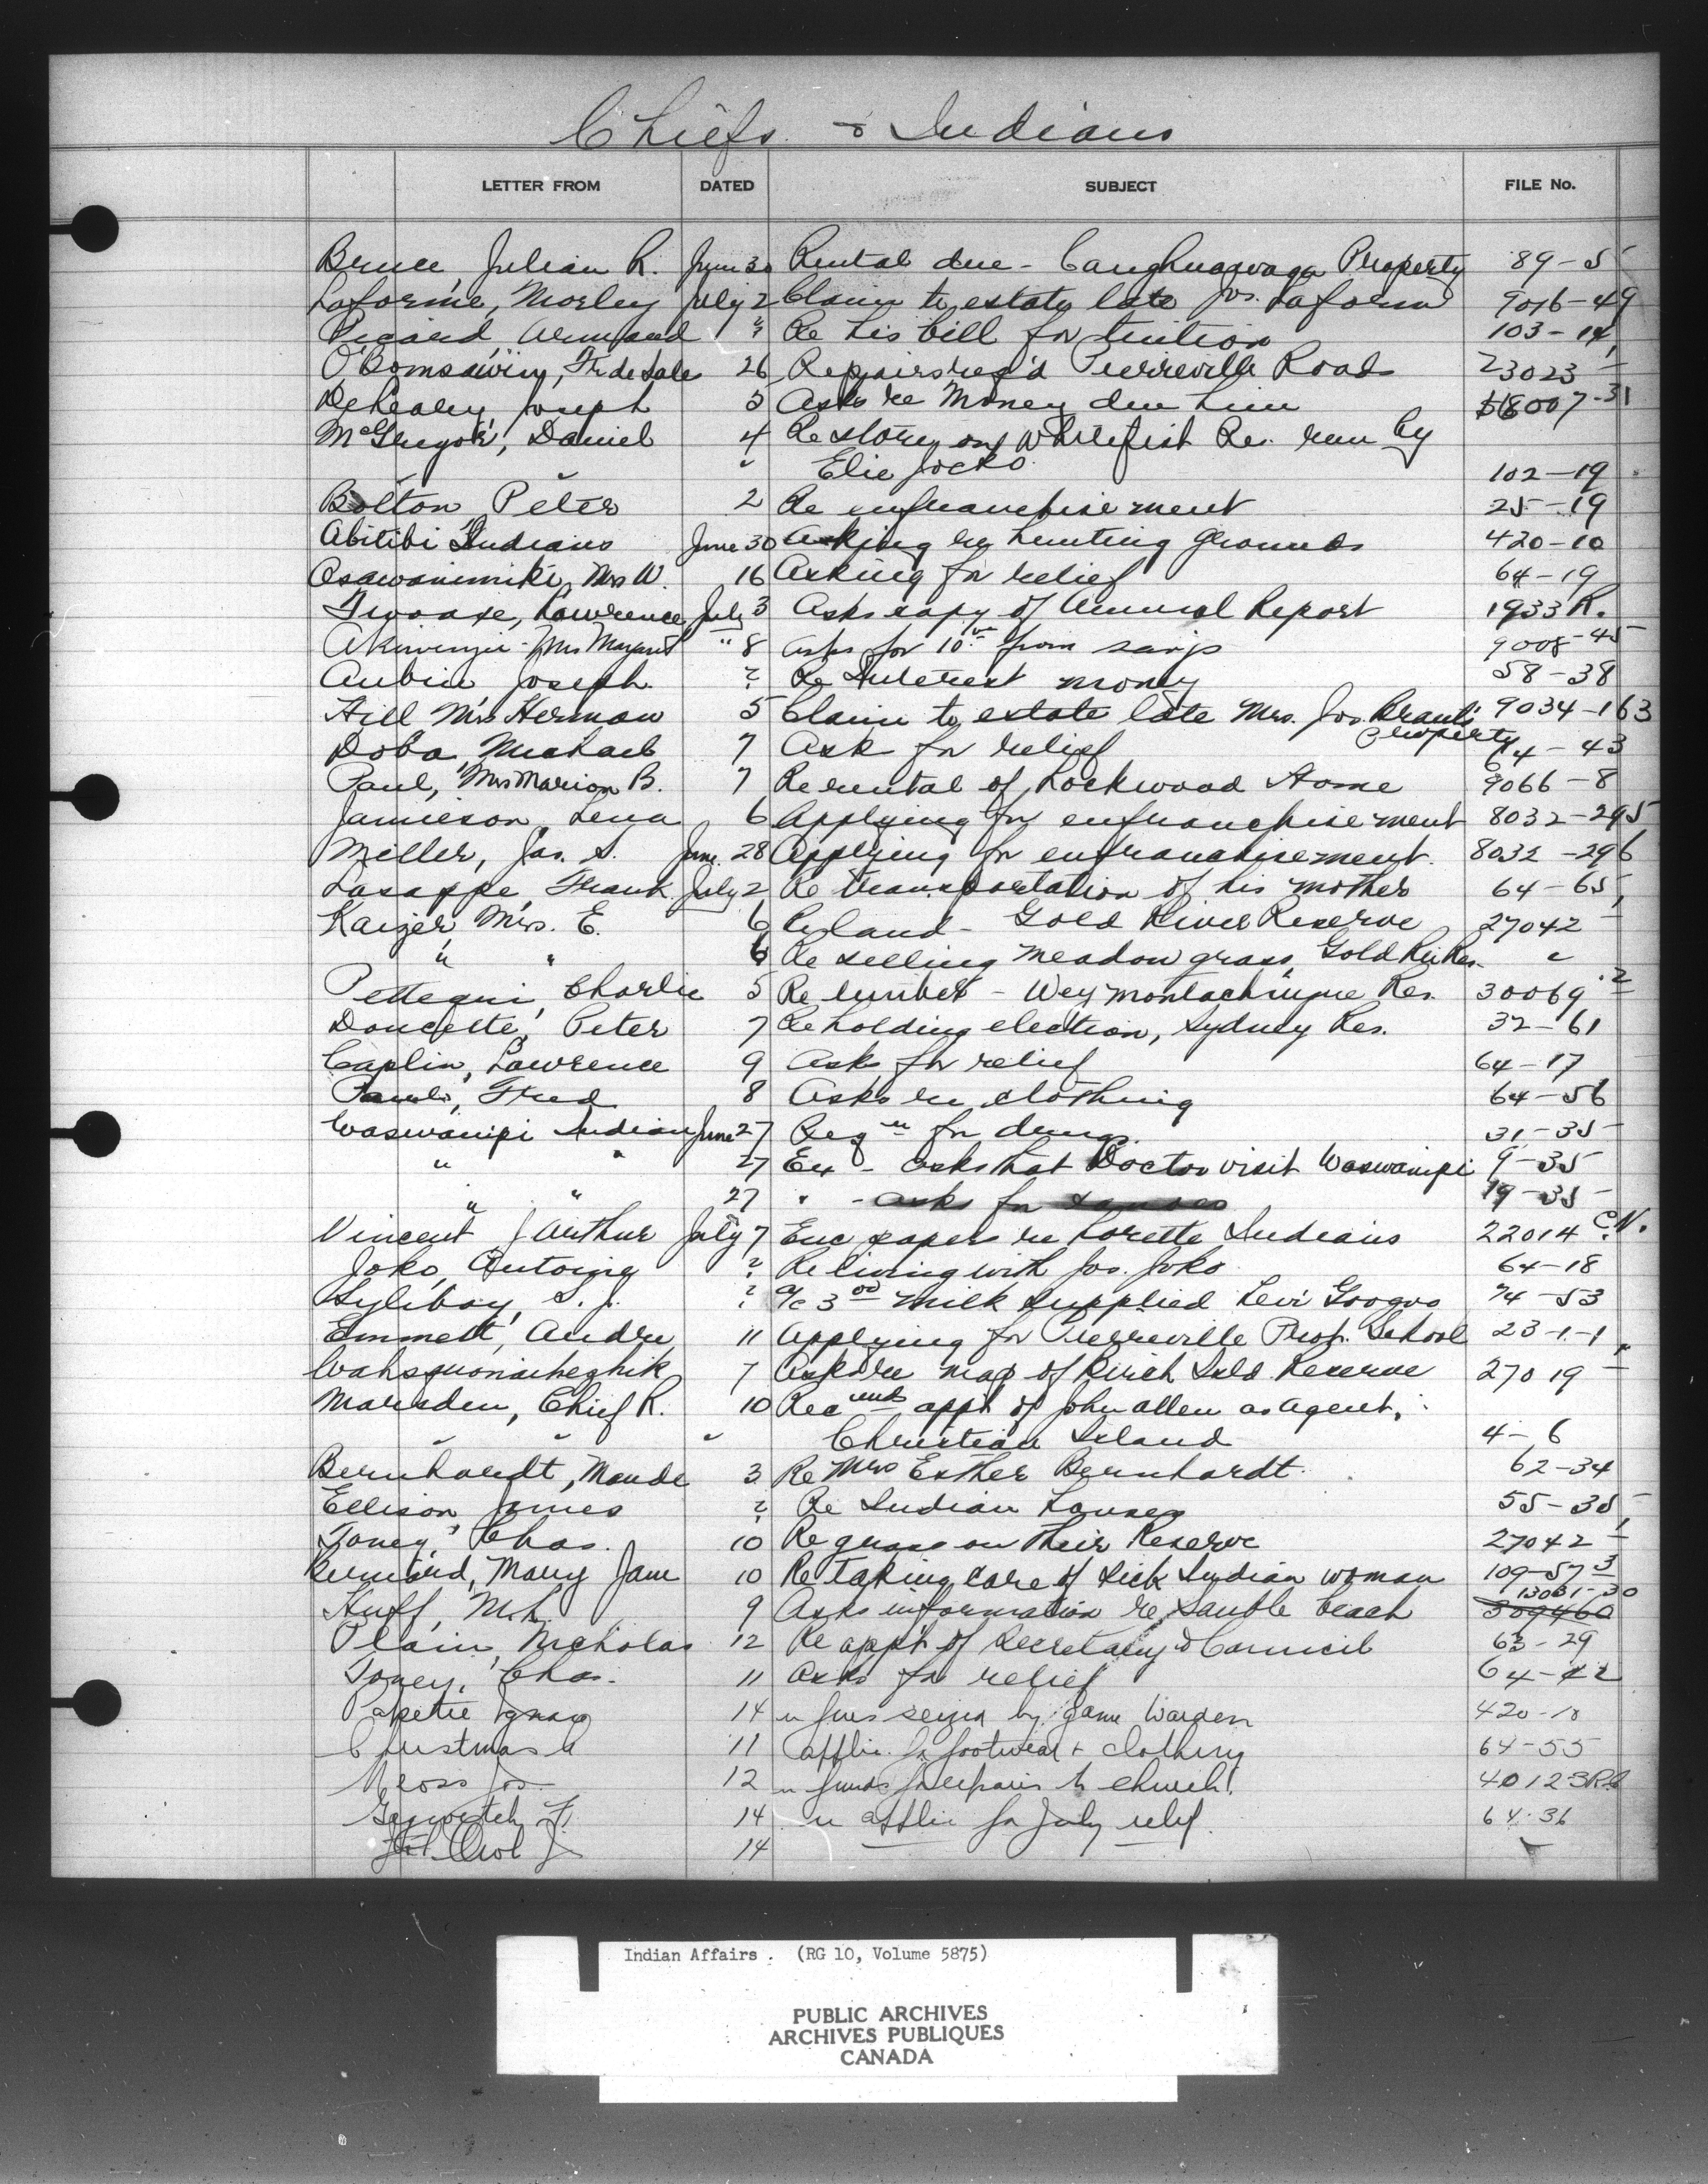 Chiefs & Indians
LETTER FROM DATED SUBJECT FILE No.
Bruce, Julian R. June 30 Rental due - Caughnawaga Property 89-5
Laforme, Morley July 2 Claim to estate late Jos. Laforme 9016-49
Picard, Armand " Re his bill for tuition 103-14
O'Bomsawin, Fr de Sale 26 Repairs req'd Pierreville Road 23023
Joseph 5 Asks re Money due him 18007-31
McGregor, Daniel 4 Re store on Whitefish Re. run by
" " " Elie Jocko 102-19
Bolton, Peter 2 Re enfranchisement 25-19
Abitibi Indians June 30 Asking re hunting grounds 420-10
Osawanimiki, Mrs W. 16 Asking for relief 64-19
Twoaxe, Lawrence July 3 Asks copy of Annual Report 1933 R.
Akiwenzie - Mrs Margaret " 8 asks for 10.00 from savgs 9008-45
Aubin, Joseph ? Re Interest money 58-38
Hill Mrs Herman 5 Claim to estate late Mrs. Jos. Brant's 9034-163
property
Doba, Michael 7 Ask for relief 64-43
Paul, Mrs Marion B. 7 Re rental of Lockwood Home 9066-8
Jamieson, Lena 6 Applying for enfranchisement 8032-295
Miller, Jas. S. June 28 Applying for enfranchisement. 8032-296
Lasappe, Frank July 2 Re transportation of his mother 64-65
Kaizer, Mrs. E. 6 Re land - Gold River Reserve 27042
" " 6 Re selling meadow grass, Gold Riv Res. "
Charlie 5 Re lumber - Weymontachingue Res. 30069-2
Doucette, Peter 7 Re holding election, Sydney Res. 32-61
Caplin, Lawrence 9 Asks for relief 64-17
Fred 8 Asks re clothing 64-56
Waswanipi Indians June 27 Reqn for drugs. 31-35
" " 27 Ex - asks that Doctor visit Waswanipi 9-35
" " 27 " - asks for 19-35
Vincent J Arthur July 7 Enc papers re Lorette Indians 22014 C.N.
Joko, Antoine ? Re living with Jos. Joko 64-18
Syliboy, S. J. ? a/c 3.00 milk supplied Levi Googoo 74-53
Emmett, Andre 11 Applying for Pierreville Prot. School 23-1-1
7 Asks re map of Isld Reserve 27019
Marsden, Chief R. 10 Recmds appt of John Allen as agent,
" " " Christian Island 4-6
Bernhardt, Maude 3 Re Mrs Esther Bernhardt. 62-34
Ellison James ? Re Indian houses 55-35
Toney, Chas. 10 Re grass on their Reserve 27042
Bernard, Mary Jane 10 Re taking care of sick Indian woman 109-57-3
Huff, M.L. 9 Asks information re Sauble beach 13081-30 309460
Plain, Nicholas 12 Re app't of Secretary to Council 63-29
Toney, Chas. 11 Asks for relief 64-42
Papatie Ignace 14 re furs seized by Game Warden 420-10
Christmas 11 applic. for footwear + clothing 64-55
Jos. 12 re funds for repairs to church. 40123
14 re applic for July relief. 64-36
14
Indian Affairs. (RG 10, Volume 5875)
PUBLIC ARCHIVES
ARCHIVES PUBLIQUES
CANADA